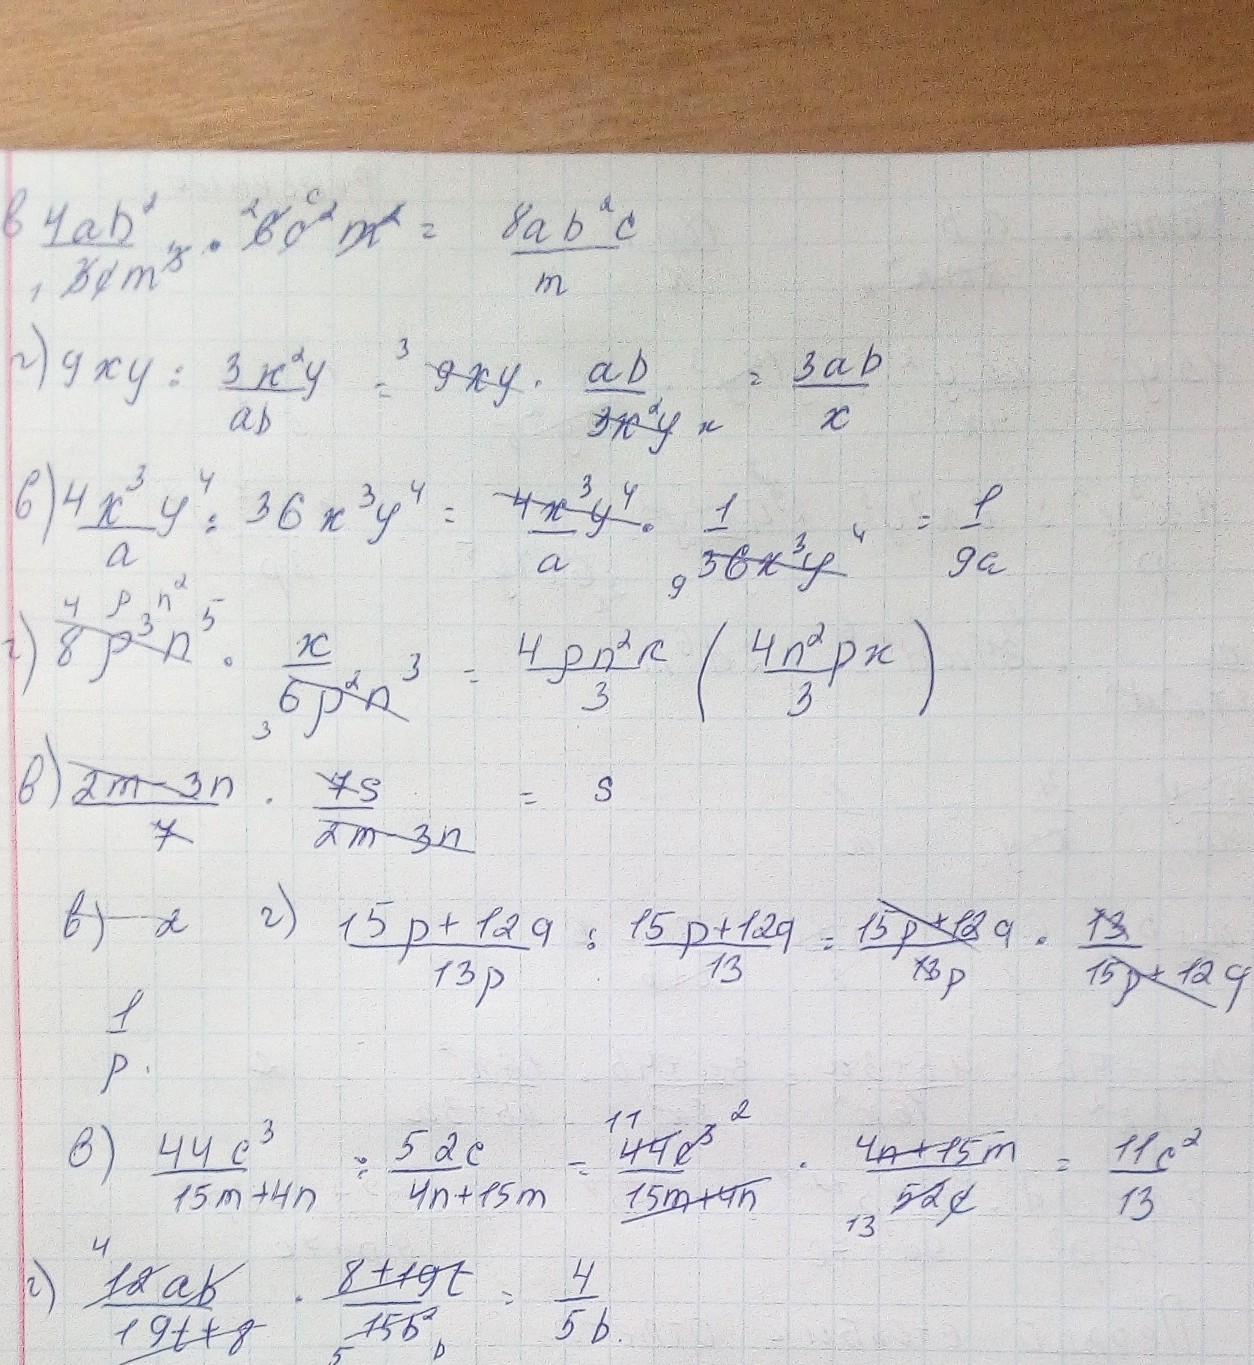 в 4ab² / 3cm³ · 6c²m² = 8ab²c / m
г) 9xy : 3x²y / ab = 9xy · ab / 3x²y = 3ab / x
в) 4x³y⁴ / a : 36x³y⁴ = 4x³y⁴ / a · 1 / 36x³y⁴ = 1 / 9a
г) 8p³n⁵ · x / 6p²n³ = 4pn²x / 3 (4n²px / 3)
в) 2m-3n / 7 · 7s / 2m-3n = s
в) 2 г) 15p+12q / 13p : 15p+12q / 13 = 15p+12q / 13p · 13 / 15p+12q
1 / p.
в) 44c³ / 15m+4n : 52c / 4n+15m = 44c³ / 15m+4n · 4n+15m / 52c = 11c² / 13
г) 12ab / 19t+8 · 8+19t / 15b² = 4 / 5b.